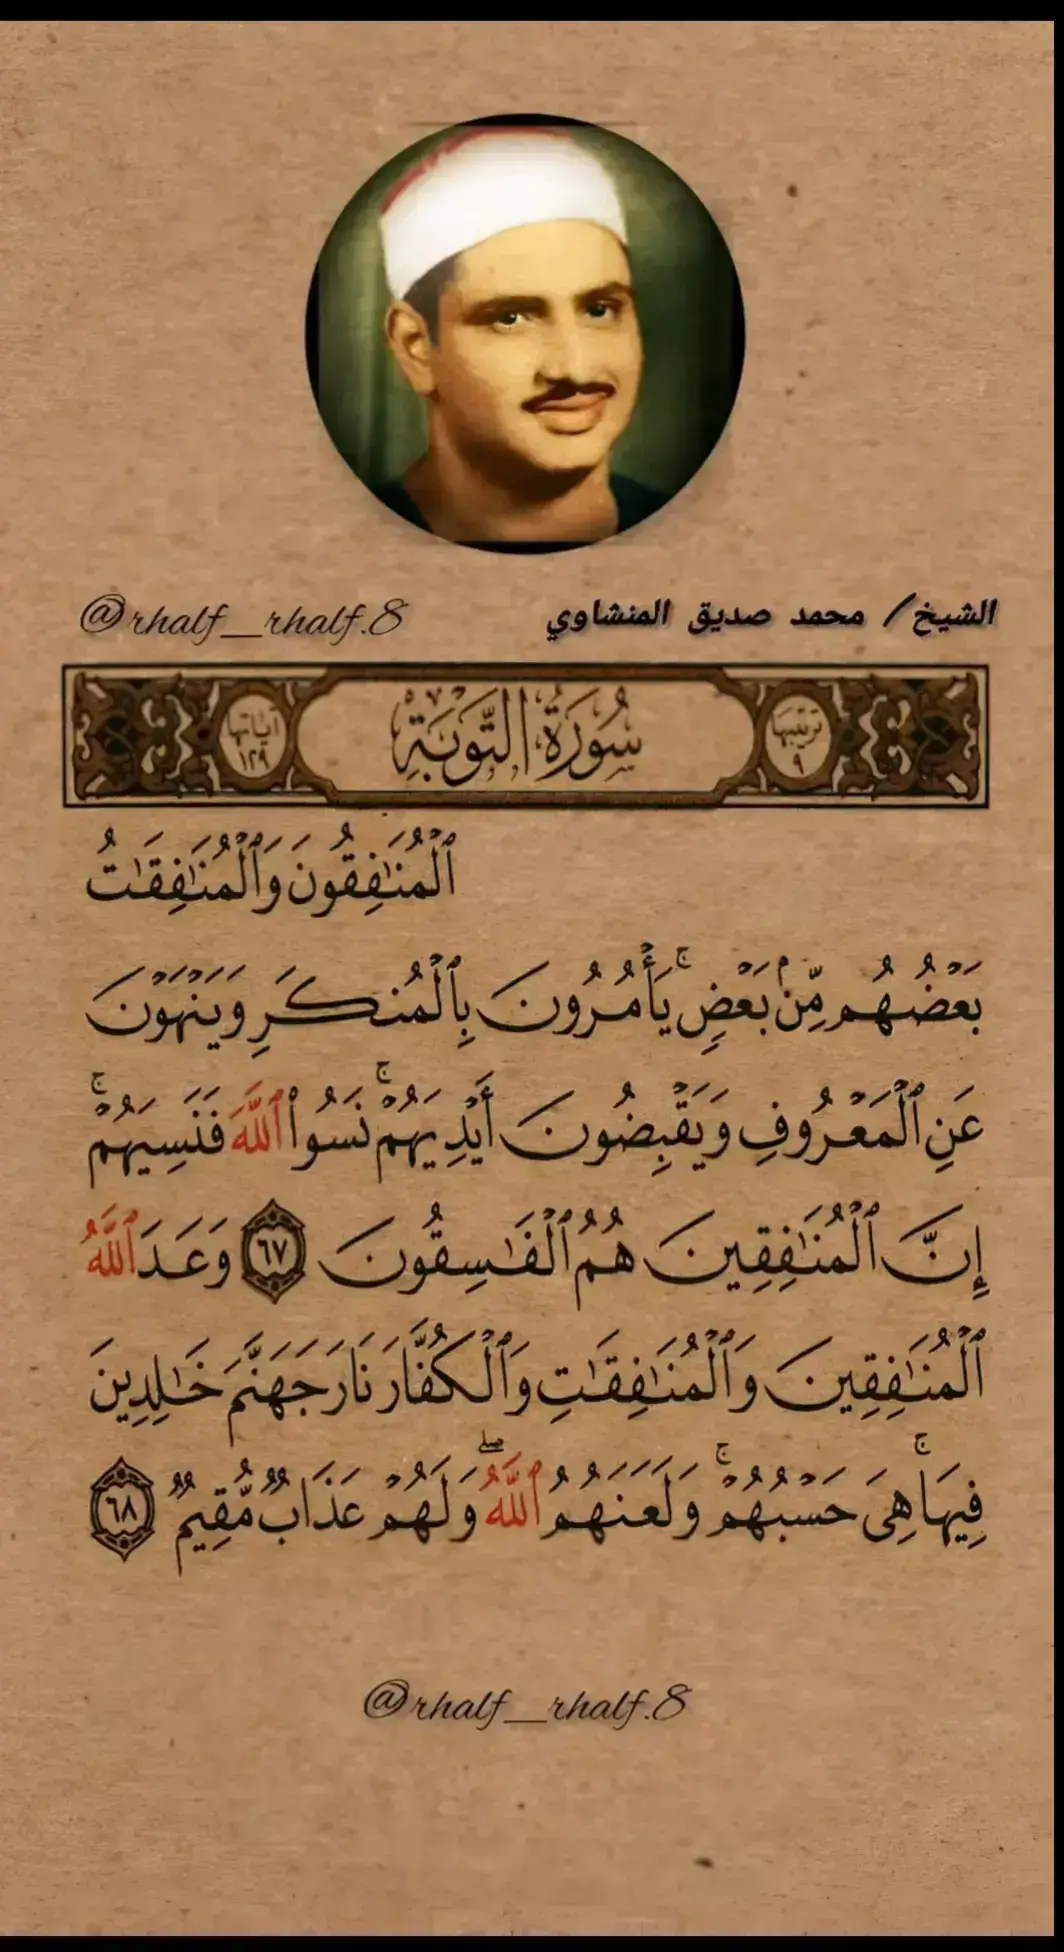 الشيخ / محمد صديق المنشاوي
@rhalf_rhalf.8
ترتيبها ٩
سُورَةُ التَّوْبَةِ
آياتها ١٢٩
ٱلْمُنَٰفِقُونَ وَٱلْمُنَٰفِقَٰتُ
بَعْضُهُم مِّنۢ بَعْضٍۚ يَأْمُرُونَ بِٱلْمُنكَرِ وَيَنْهَوْنَ
عَنِ ٱلْمَعْرُوفِ وَيَقْبِضُونَ أَيْدِيَهُمْۚ نَسُوا۟ ٱللَّهَ فَنَسِيَهُمْۚ
إِنَّ ٱلْمُنَٰفِقِينَ هُمُ ٱلْفَٰسِقُونَ ٦٧ وَعَدَ ٱللَّهُ
ٱلْمُنَٰفِقِينَ وَٱلْمُنَٰفِقَٰتِ وَٱلْكُفَّارَ نَارَ جَهَنَّمَ خَٰلِدِينَ
فِيهَاۚ هِىَ حَسْبُهُمْۚ وَلَعَنَهُمُ ٱللَّهُۖ وَلَهُمْ عَذَابٌ مُّقِيمٌ ٦٨
@rhalf_rhalf.8